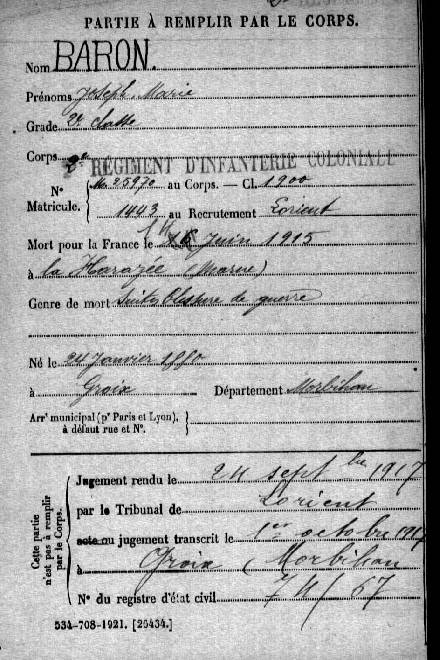 PARTIE À REMPLIR PAR LE CORPS.
Nom BARON.
Prénoms Joseph Marie
Grade 2e classe
Corps 2e RÉGIMENT D'INFANTERIE COLONIALE
N° Matricule. { Mle 25970 au Corps. — Cl. 1900
1443 au Recrutement Lorient
Mort pour la France le juin 1915
à la Harazée (Marne)
Genre de mort suites blessure de guerre
Né le 24 Janvier 1880
à Groix Département Morbihan
Arrt municipal (pr Paris et Lyon),
à défaut rue et N°.
Cette partie n'est pas à remplir par le Corps.
Jugement rendu le 24 septbre 1917
par le Tribunal de Lorient
acte ou jugement transcrit le 1er octobre 1917
à Groix Morbihan
N° du registre d'état civil 74/67
534-708-1921. [26434.]